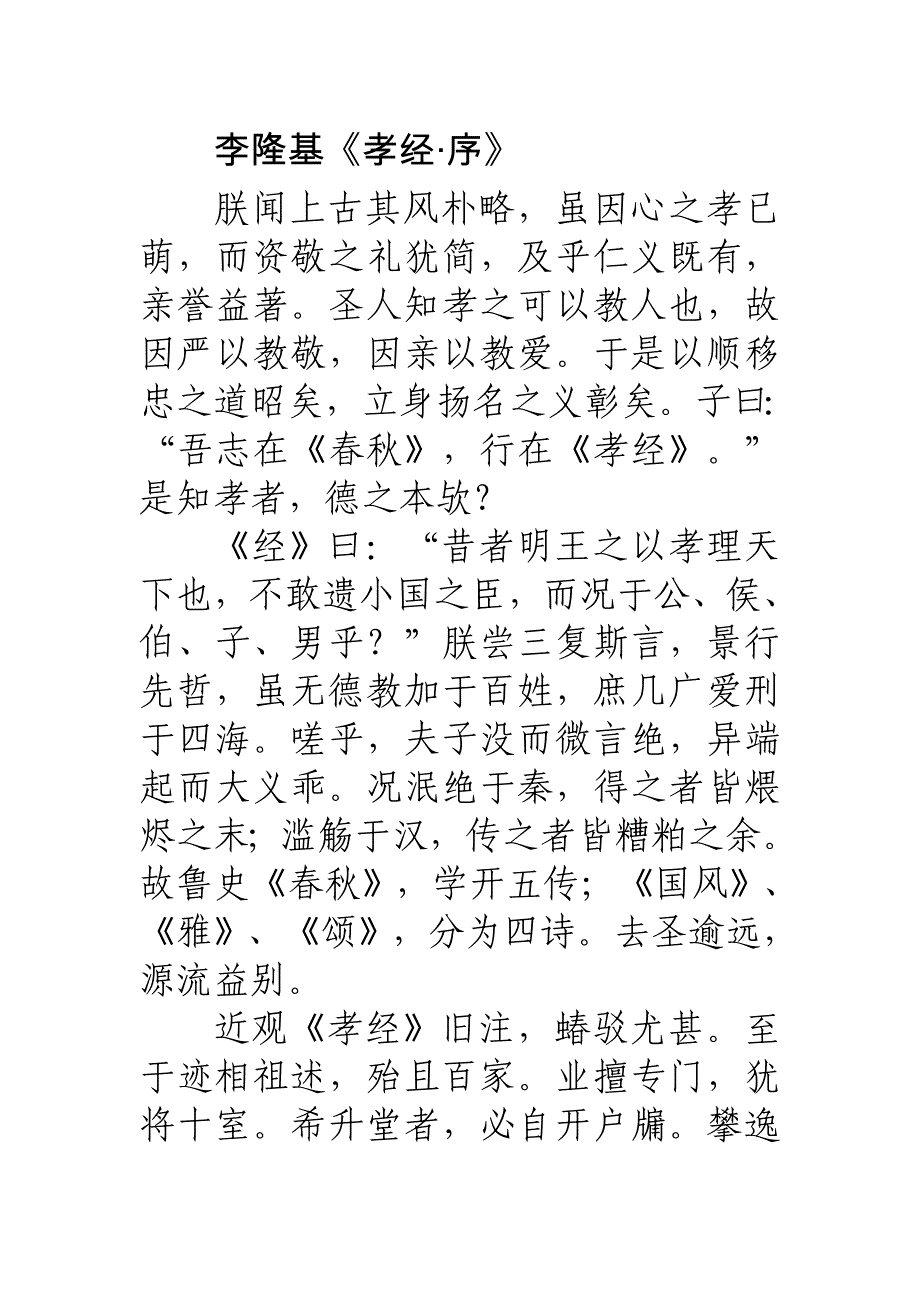 李隆基《孝经·序》
朕闻上古其风朴略，虽因心之孝已
萌，而资敬之礼犹简，及乎仁义既有，
亲誉益著。圣人知孝之可以教人也，故
因严以教敬，因亲以教爱。于是以顺移
忠之道昭矣，立身扬名之义彰矣。子曰：
“吾志在《春秋》，行在《孝经》。”
是知孝者，德之本欤？
《经》曰：“昔者明王之以孝理天
下也，不敢遗小国之臣，而况于公、侯、
伯、子、男乎？”朕尝三复斯言，景行
先哲，虽无德教加于百姓，庶几广爱刑
于四海。嗟乎，夫子没而微言绝，异端
起而大义乖。况泯绝于秦，得之者皆煨
烬之末；滥觞于汉，传之者皆糟粕之余。
故鲁史《春秋》，学开五传；《国风》、
《雅》、《颂》，分为四诗。去圣逾远，
源流益别。
近观《孝经》旧注，蝽驳尤甚。至
于迹相祖述，殆且百家。业擅专门，犹
将十室。希升堂者，必自开户牖。攀逸